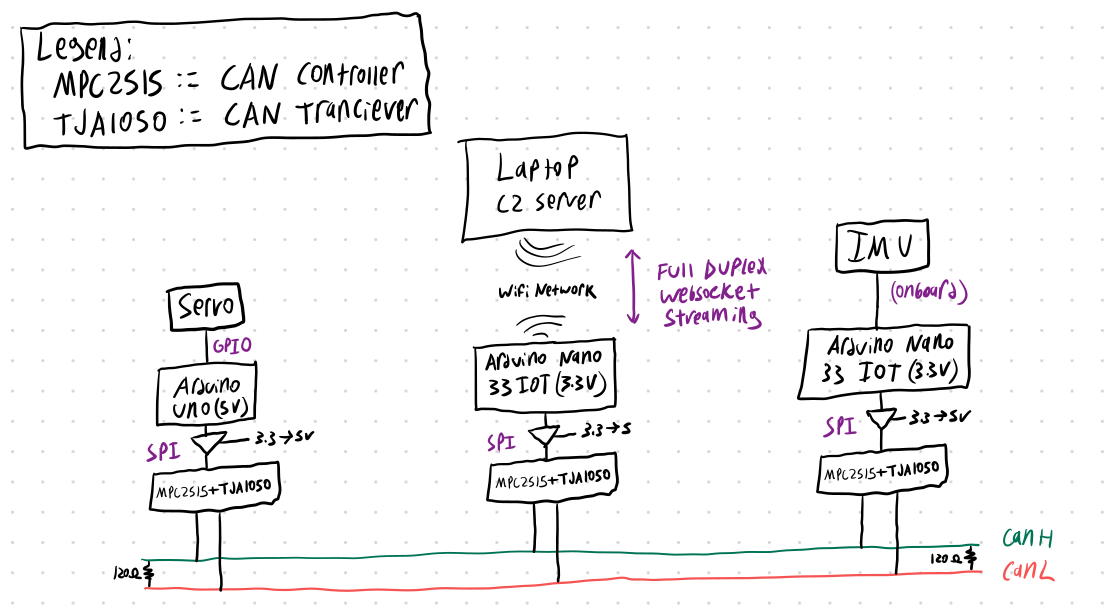 Legend:
MPC2515 := CAN Controller
TJA1050 := CAN Tranciever
Laptop
C2 server
Wifi Network
Full Duplex
Websocket
Streaming
IMU
(onboard)
Servo
GPIO
Arduino
UNO(5V)
SPI
3.3→5V
MPC2515+TJA1050
Arduino Nano
33 IOT (3.3V)
SPI
3.3→5
MPC2515+TJA1050
Arduino Nano
33 IOT (3.3V)
SPI
3.3→5V
MPC2515+TJA1050
120Ω
120Ω
Can H
Can L